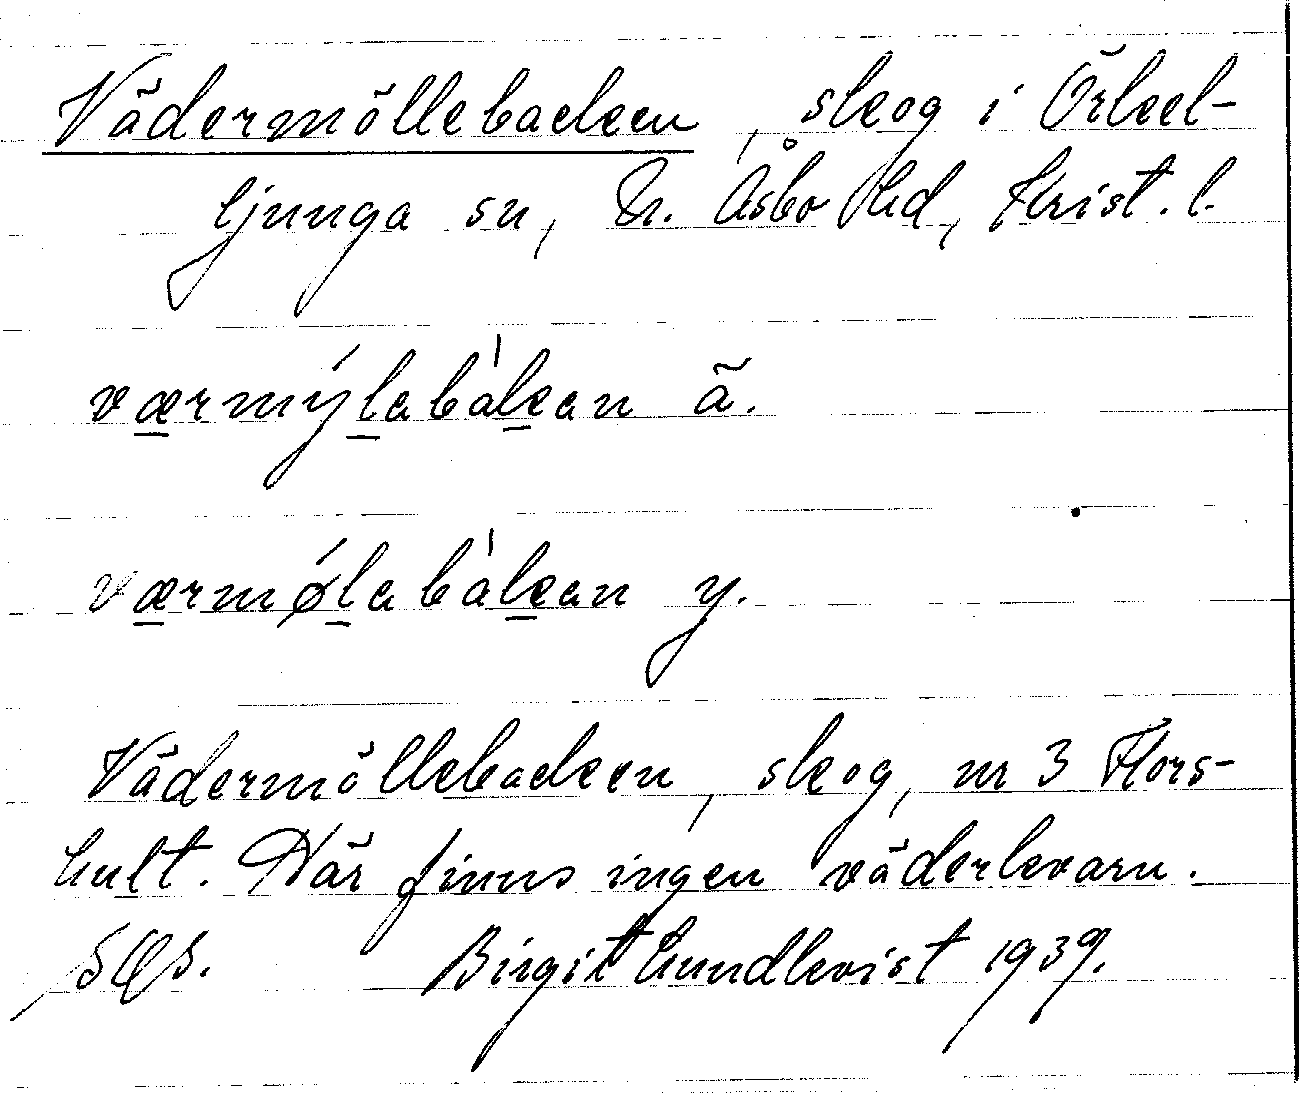 Vädermöllebacken, skog i Örkel-
ljunga sn, N. Åsbo hd, Krist. l.
værmýlabàkan ä.
værmǿlabàkan y.
Vädermöllebacken, skog, nr 3 Flors-
hult. Här finns ingen väderkvarn.
SOS. Birgit Lundkvist 1939.